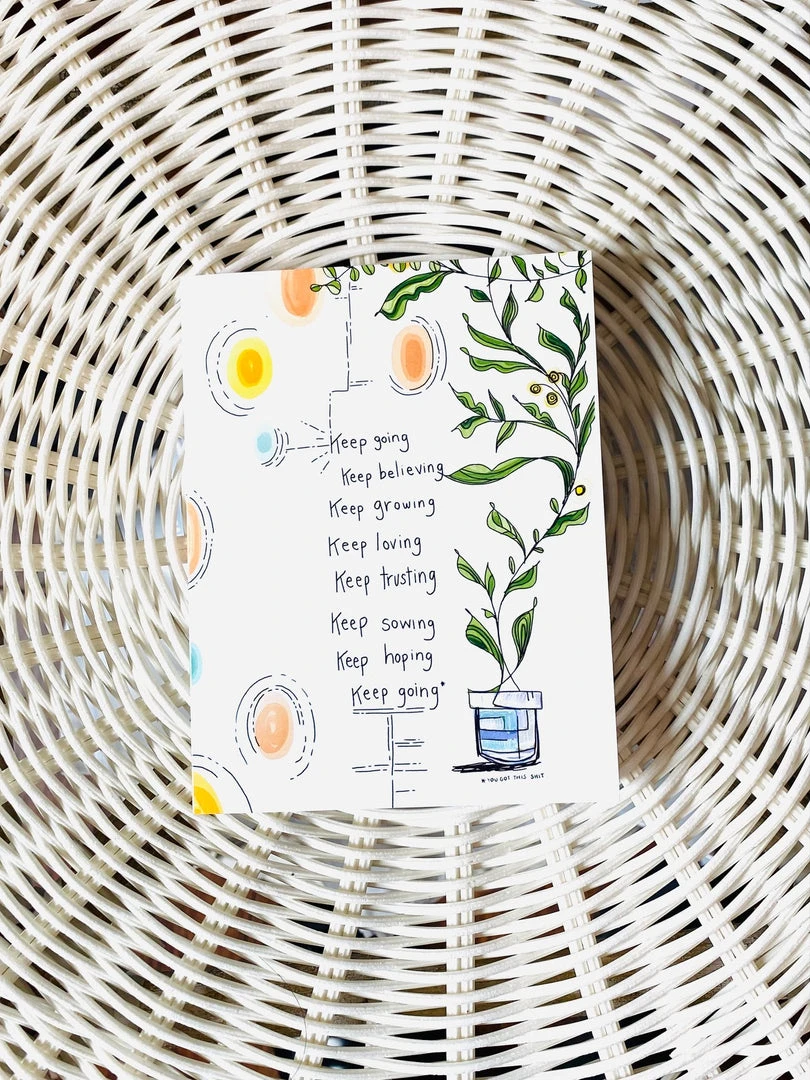 Keep going
Keep believing
Keep growing
Keep loving
Keep trusting
Keep sowing
Keep hoping
Keep going*
* YOU GOT THIS SHIT